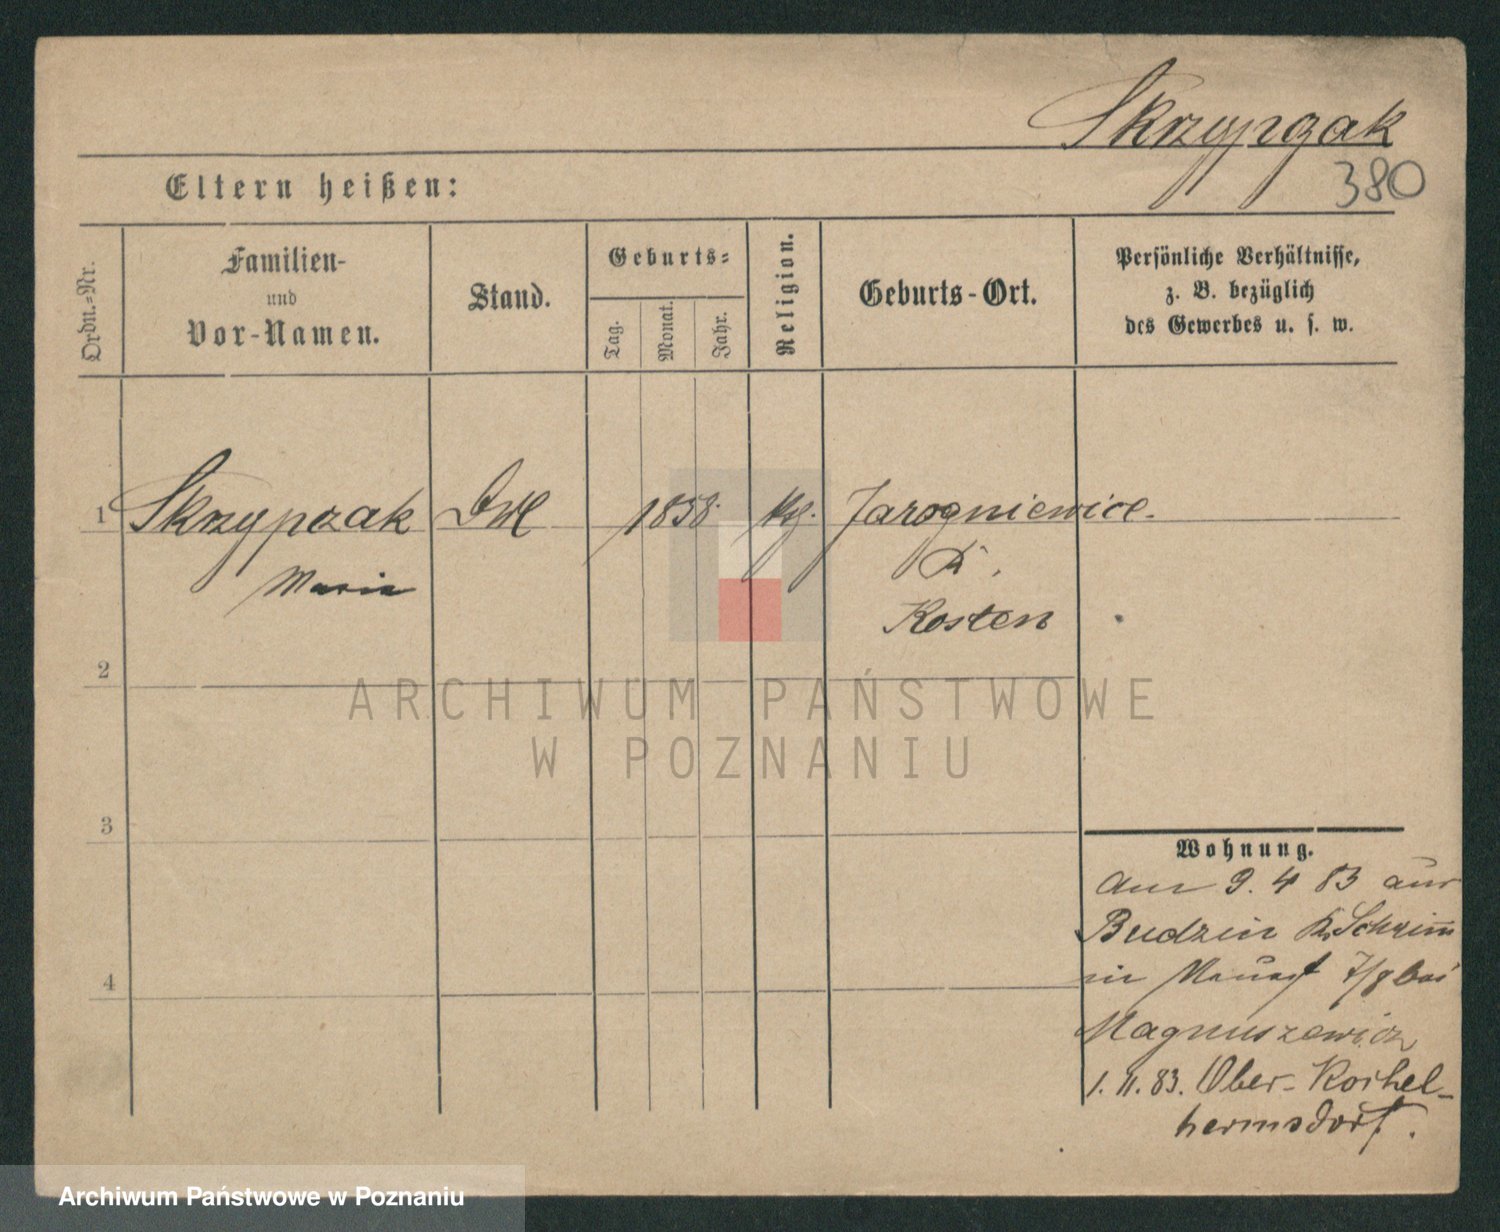 Skrzypczak
380
Eltern heißen:
Ordn.=Nr.
Familien-
und
Vor-Namen.
Stand.
Geburts=
Tag.
Monat.
Jahr.
Religion.
Geburts-Ort.
Persönliche Verhältnisse,
z. B. bezüglich
des Gewerbes u. s. w.
1 Skrzypczak 1858 Jarogniewice
Marie
Kosten
2
ARCHIWUM PAŃSTWOWE
W POZNANIU
3
Wohnung.
Am 9. 4 83 aus
Budzin Kr. Schrimm
in 7/8 bei
Magnuszewicz
4
1. 11. 83. Ober-
hermsdorf.
Archiwum Państwowe w Poznaniu